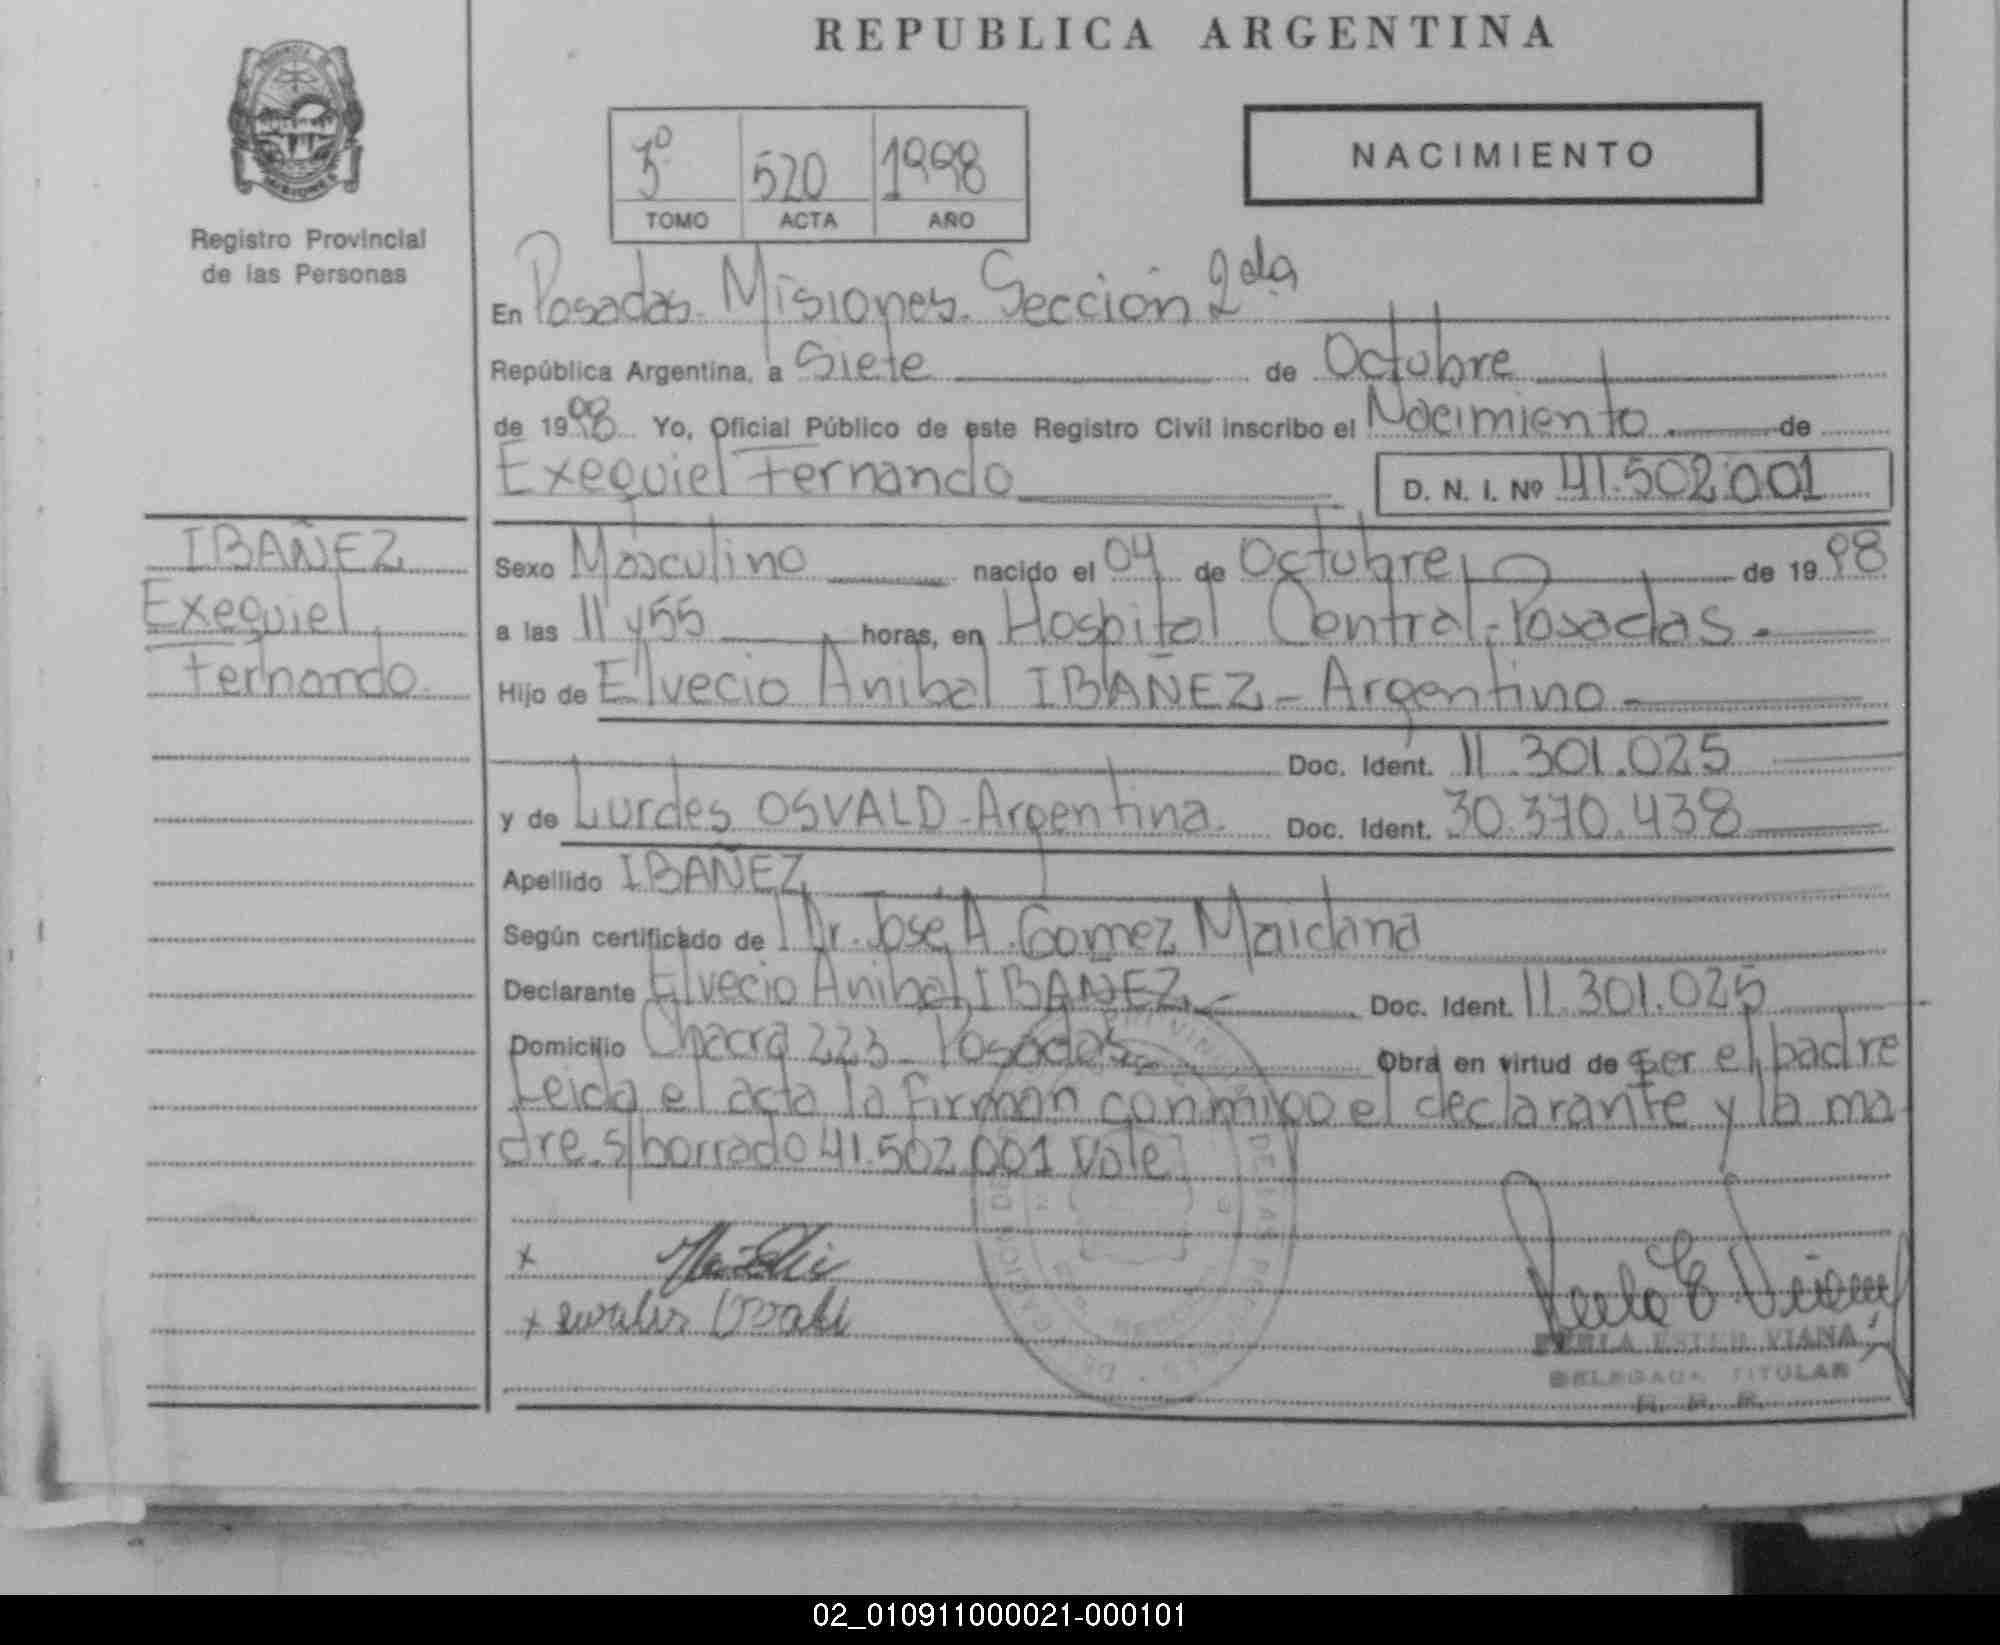 REPUBLICA ARGENTINA
Registro Provincial
de las Personas
3º 520 1998
TOMO ACTA AÑO
NACIMIENTO
En Posadas. Misiones. Sección 2da
República Argentina, a Siete de Octubre
de 1998 Yo, Oficial Público de este Registro Civil inscribo el Nacimiento de
Exequiel Fernando D. N. I. Nº 41.502.001
IBAÑEZ
Exequiel
Fernando.
Sexo Masculino nacido el 04 de Octubre de 1998
a las 11 y 55 horas, en Hospital Central-Posadas.-
Hijo de Elvecio Anibal IBAÑEZ - Argentino
Doc. Ident. 11.301.025
y de Lurdes OSVALD-Argentina. Doc. Ident. 30.370.438
Apellido IBAÑEZ
Según certificado de Dr. José A. Gomez Maidana
Declarante Elvecio Anibal IBAÑEZ.- Doc. Ident. 11.301.025
Domicilio Chacra 223- Posadas. Obra en virtud de ser el padre
Leida el acta la firman conmigo el declarante y la ma-
dre. s/borrado 41.502.001 Vale
x
x
PERLA ESTER VIANA
DELEGADA TITULAR
R. P. P.
02_010911000021-000101